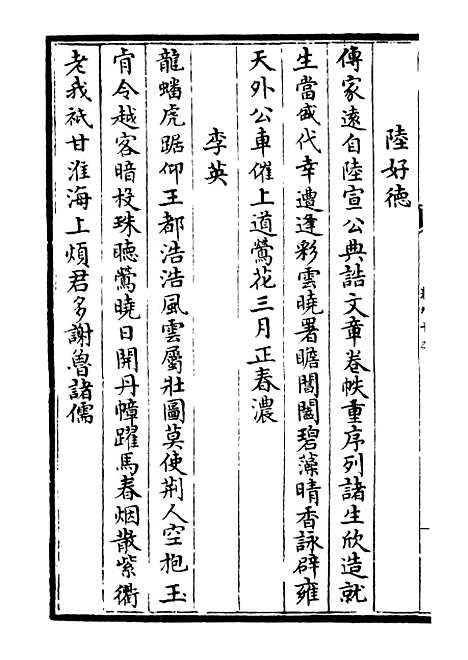 陸好德
傳家遠自陸宣公典誥文章卷帙重序列諸生欣造就
生當盛代幸遭逢彩雲曉署瞻閶闔碧藻晴香詠辟雍
天外公車催上道鶯花三月正春濃
李英
龍蟠虎踞仰王都浩浩風雲屬壯圖莫使荆人空抱玉
肯令越客暗投珠聽鶯曉日開丹幛躍馬春烟散紫衢
老我袛甘淮海上煩君多謝魯諸儒